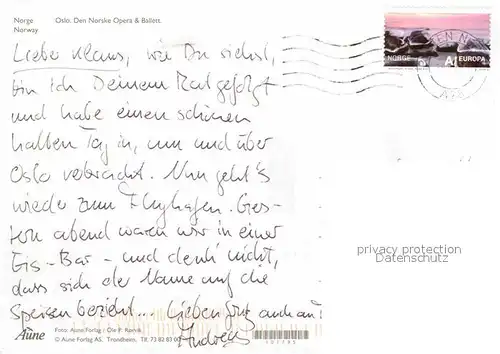 Norge
Norway
Oslo. Den Norske Opera & Ballett.
Lieber Klaus, wie Du siehst,
bin ich Deinem Rat gefolgt
und habe einen schönen
halben Tag in, um und über
Oslo verbracht. Nun geht's
wieder zum Flughafen. Ges-
tern abend waren wir in einer
Eis-Bar - und denk' nicht,
dass sich der Name auf die
Speisen bezieht... Lieben Gruß auch an
Andreas
NORGE
A
EUROPA
privacy protection
Dachshandel
Aune
Foto: Aune Forlag / Ole P. Rørvik
© Aune Forlag AS. Trondheim. Tlf. 73 82 83 00